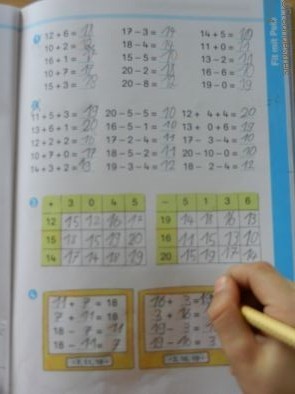 Fit mit Pass
12 + 6 = 17 - 3 = 14 14 + 5 =
10 + 2 = 18 - 4 = 11 + 0 =
16 + 1 = 15 - 5 = 13 - 2 =
10 + 7 = 20 - 2 = 16 - 6 =
15 + 3 = 20 - 8 = 19 - 0 =
11 + 5 + 3 = 19 20 - 5 - 5 = 10 12 + 4 + 4 = 20
13 + 6 + 1 = 20 16 - 5 - 1 = 10 13 + 0 + 6 = 19
12 + 2 + 2 = 13 - 0 - 2 = 11 17 - 3 - 4 = 10
10 + 7 + 0 = 17 18 - 5 - 2 = 11 20 - 10 - 0 = 10
14 + 3 + 2 = 19 19 - 3 - 4 = 12 18 - 2 - 4 = 12
+ 3 0 4 5 - 5 1 3 6
12 15 12 16 17 19 14 18 16 13
15 18 15 19 20 16 11 15 13 10
14 17 14 18 19 20 15 19 17 14
11 + 7 = 18 16 + 3 = 19
7 + 11 = 18 3 + 16 =
18 - 7 = 11 19 - 3 =
18 - 11 = 7 19 - 16 = 3
7, 11, 18 3, 16, 19